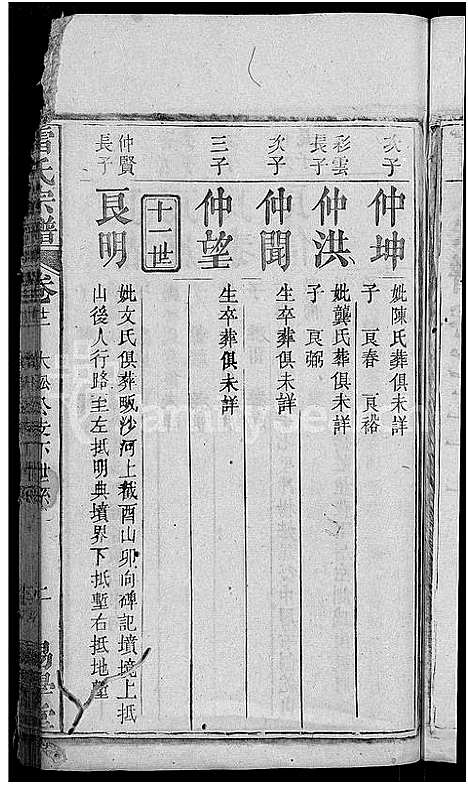 次子
仲坤
妣陳氏葬俱未詳
子 良春 良裕
彩雲
長子
仲洪
妣龔氏葬俱未詳
子 良弼
次子
仲聞
生卒葬俱未詳
三子
仲望
生卒葬俱未詳
十一世
仲賢
長子
良明
妣文氏俱葬畈沙河上截酉山卯向碑記墳境上抵
山後人行路至左抵明典墳界下抵塹右抵地墈
氏宗譜
卷廿二